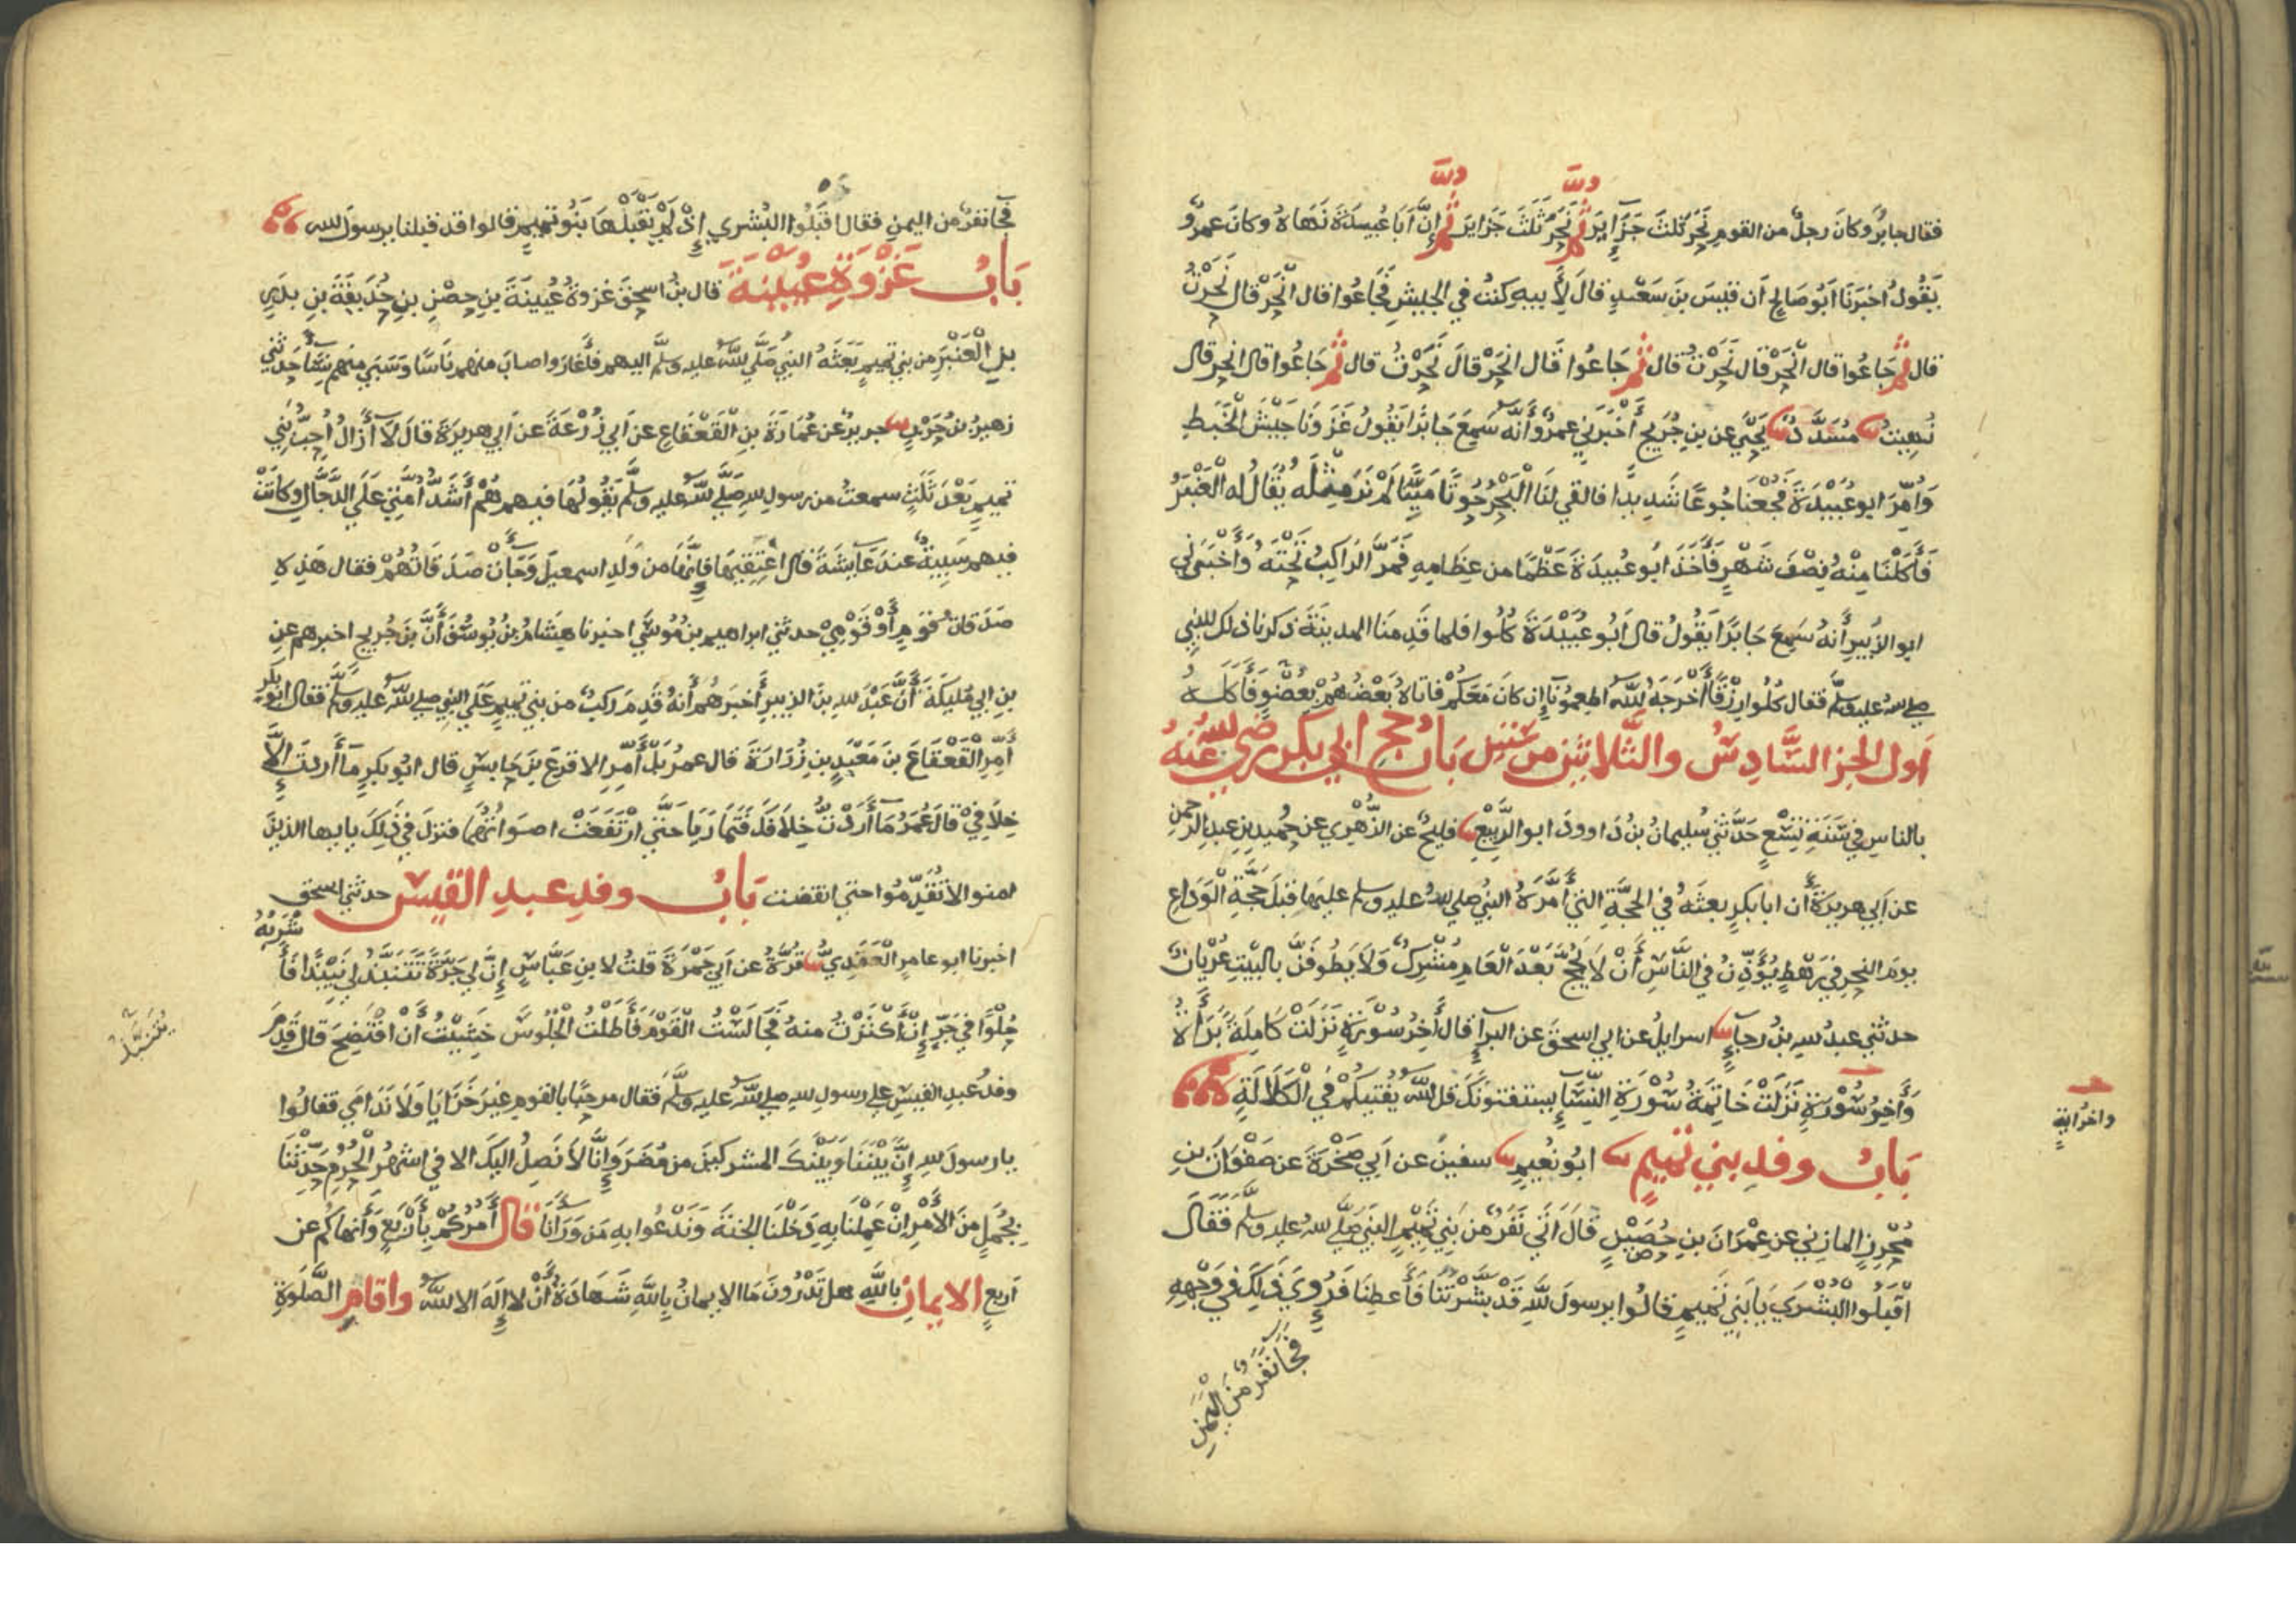 فقال جابرٌ وكانَ رجلٌ من القومِ نَحَرَ ثلثَ جَزَايِرَ ثُمَّ نَحَرَ ثَلثَ جَزَايرَ ثُمَّ إِنَّ أَبَا عُبَيدَةَ نَهَاهُ وكانَ عمرٌو
يَقُولُ اخبَرَنَا أَبُو صَالِحٍ أن قَيسَ بنَ سَعْدٍ قالَ لِأَبيهِ كنتُ في الجيشِ فَجَاعُوا قال انْحَرْ قال نَحَرْتُ
قال ثُمَّ جَاعُوا قال انْحَرْ قال نَحَرْتُ قال ثُمَّ جَاعُوا قَال انْحَرْ قالَ نَحَرْتُ قال ثُمَّ جَاعُوا قال انحر قال
نُهِيتُ مُسَدَّدٌ يَحْيَى عن بنِ جُرَيجٍ أَخْبَرَنِي عمرٌو أَنَّهُ سَمِعَ جَابرًا يَقُولُ غَزَونَا جَيْشَ الْخَبَطِ
وَأُمِّرَ ابو عُبَيْدَةَ فَجُعْنَا جُوعًا شَدِيدًا فالقي لَنَا الْبَحْرُ حُوتًا مَيِّتًا لَمْ نَرَ مِثْلَهُ يُقَالُ له الْعَنْبَرُ
فَأَكَلْنَا مِنْهُ نِصْفَ شَهْرٍ فَأَخَذَ أبو عُبَيدَةَ عَظْمًا من عِظَامِهِ فَمَرَّ الرَاكِبُ تَحْتَهُ وَأَخْبَرَنِي
ابو الزبيرِ أَنهُ سَمِعَ جَابرًا يَقُولُ قال أَبُو عُبَيْدَةَ كُلُوا فلما قَدِمنَا المدينَةَ ذكرنا ذلك للنبيِ
صلى الله عليه وسلم فقال كُلُوا رِزْقًا أَخْرَجَهُ اللهُ اطعِمُونَا إن كانَ مَعَكُمْ فاتاهُ بَعْضُهُمْ بعُضْوٍ فَأَكَلَهُ
أول الجز السَّادِسُ والثَّلاثِين من سَتين بَابُ حجِ ابي بكر رضي الله عَنْهُ
بالناسِ في سَنَةِ تِسْعٍ حَدَّثَنِي سُليمانُ بنُ دَاوودَ ابو الرَّبِيْعِ فليحٌ عن الزُّهْرِي عن حُميدِ بنِ عبدِ الرحمنِ
عن أبي هريرَةَ أن ابا بكرٍ بعثَهُ في الحَجَّةِ التي أَمَّرَهُ النبيُ صلي الله عليه وسلم عليهَا قبلَ حَجَّةِ الْوَدَاعِ
يومَ النحرِ في رَهْطٍ يُؤَذِّنُ في النَّاسِ أَنْ لَا يَحُجَّ بَعْدَ الْعَامِ مُشْرِكٌ وَلَا يَطُوفَنَّ بالبَيْتِ عُرْيَانٌ
حدثني عبدُ اللهِ بنُ رجاءٍ اسرايلُ عن ابي اسحقَ عن البرآءِ قال آخِرُ سُوْرَةٍ نَزَلَتْ كَامِلَةً بَرَآءَةٌ
وَآخِرُ سُوْرَةٍ نَزَلَتْ خَاتِمَةُ سُوْرَةِ النِّسَآءِ يستفتونَكَ قل اللهُ يُفْتِيكُمْ فِي الْكَلَالَةِ
واخرُ ايةٍ
بَابُ وفدِ بني تميمٍ ابو نُعيمٍ سفينُ عن أبي صَخْرَةَ عن صَفْوَانَ بنِ
مُحْرِزٍ المازنِي عن عِمْرَانَ بنِ حُصَيْنٍ قَالَ أَتَى نَفَرٌ مِنْ بَنِي تَمِيْمٍ النبيَ صَلَّى الله عليه وسلم فَقَالَ
اقْبَلُوا الْبُشْرَيَ يَا بَنِي تَمِيمٍ قالوا يرسولَ اللهِ قَدْ بَشَّرْتَنَا فَأَعطِنَا فَرُؤِيَ ذلِكَ في وَجْهِهِ
فجَآءَ نَفَرٌ مِنَ الْيَمَنِ
فجَآءَ نفرٌ من اليمنِ فقال اقْبَلُوا البُشري إِذْ لَمْ يَقْبَلْهَا بَنُو تميمٍ قالوا قد قبلنا يرسولَ الله
بَابُ غَزْوَةِ عُيَيْنَةَ قال بنُ اسحقَ غزوةُ عُيينَةَ بنِ حِصْنِ بنِ حُذَيفَةَ بنِ بدرٍ
بني الْعَنْبَرِ من بني تميمٍ بَعَثَهُ النبيُ صَلَّى اللهُ عليه وسلَّم اليهم فأَغَارَ واصابَ منهم نَاسًا وَسَبَى منهم نِسَآءً حَدثني
زهيرُ بنُ حَرْبٍ جريرٌ عن عُمَارَةَ بنِ الْقَعْقَاعِ عن أبي زُرْعَةَ عن أبي هريرَةَ قالَ لَا أَزَالُ أُحِبُّ بَنِي
تميمٍ بَعْدَ ثَلَثٍ سمعتُ من رسولِ اللهِ صَلَّى اللهُ عليه وسلَّم يَقُولُهَا فيهم هُمْ أَشَدُّ أُمَّتِي عَلَي الدَّجَّالِ وكانَتْ
فيهم سَبِيَّةٌ عندَ عَآيشَةَ فقال اعْتِقِيهَا فإِنَّهَا مِن وَلَدِ اسمعيلَ وَجَآءَتْ صَدَقَاتُهُمْ فقال هَذِهِ
صَدَقَاتُ قَومٍ أَوْ قَوْمِيْ حدثني ابراهيم بنُ مُوسَى اخبرنا هِشَامُ بنُ يُوسُفَ أَنَّ بنَ جُريجٍ اخبرهم عن
بنِ ابي مُليكَةَ أَنَّ عَبْدَ اللهِ بنَ الزبيرِ أَخبرَهُمْ أَنهُ قَدِمَ رَكبٌ من بني تميمٍ عَلَي النبيِ صلي اللهُ عليه وسلَّم فقال ابو بكرٍ
أَمِّرِ الْقَعْقَاعَ بنَ مَعْبَدِ بنِ زُرَارَةَ قال عمرُ بَلْ أَمِّرِ الاقرعَ بنَ حَابسٍ قال ابُو بكرٍ مَآ أَردتَ إلَّا
خِلَافِيْ قالَ عُمَرُ مَآ أَرَدْتُ خِلَافَكَ فَتَمَارَيَا حَتَّى ارْتَفَعَتْ اصوَاتُهُمَا فنزلَ في ذَلِكَ يايها الذين
امنوا لا تُقَدِّمُوا حتي انقضت بَابُ وفدِ عبدِ القيس حدثني اسحق
اخبرنا ابو عامرٍ الْعَقَدِيُّ قُرَّةُ عن أبي جَمْرَةَ قلتُ لابنِ عَبَّاسٍ إِنَّ لي جَرَّةً تَنْتَبِذُ لي نَبِيْذًا فَأَشْرَبُهُ
حُلْوًا في جَرٍّ إِنْ أَكْثَرْتُ منهُ فَجَالَسْتُ القَوْمَ فَأَطَلْتُ الْجُلُوسَ خَشِيْتُ أَنْ افْتَضِحَ قال قَدِمَ
وفدُ عبدِ القيسِ علي رسولِ اللهِ صلي اللهُ عليه وسلَّم فقال مرحبًا بالقومِ غيرَ خَزَايَا وَلَا نَدَامَي فقالُوا
يا رسولَ اللهِ إِنَّ بَيْنَنَا وَبَيْنَكَ المشركينَ من مُضَرَ وَإِنَّا لَا نَصِلُ اليكَ الا في اشهُرِ الْحُرُمِ حَدِّثْنَا
بِجُمَلٍ مِنَ الأَمْرِ إِنْ عَمِلْنَا بهِ دَخَلْنَا الجنةَ وَنَدْعُوا بهِ مَن وَرَآنَا قال آمُرُكُمْ بِأَرْبَعٍ وَأَنهاكُم عن
أربَعٍ الايمانِ بِاللَّهِ هل تَدْرُونَ مَا الايمانُ بِاللَّهِ شَهَادَةُ أَنْ لَا إِلَهَ الا اللهُ واقامِ الصَّلَوةِ